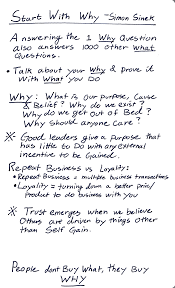 Start With Why - Simon Sinek
Answering the 1 Why Question
also answers 1000 other What
Questions.
• Talk about your Why & prove it
with What you Do
Why: What is our purpose, Cause
& Belief? Why do we exist?
Why do we get out of Bed?
Why should anyone care?
※ Good leaders give a purpose that
has little to Do with any external
incentive to be Gained.
Repeat Business vs Loyalty:
• Repeat Business = multiple business transactions
• Loyalty = turning down a better price/
product to do business with you
※ Trust emerges when we believe
Others are driven by things other
than Self Gain.
People dont Buy What, they Buy
WHY